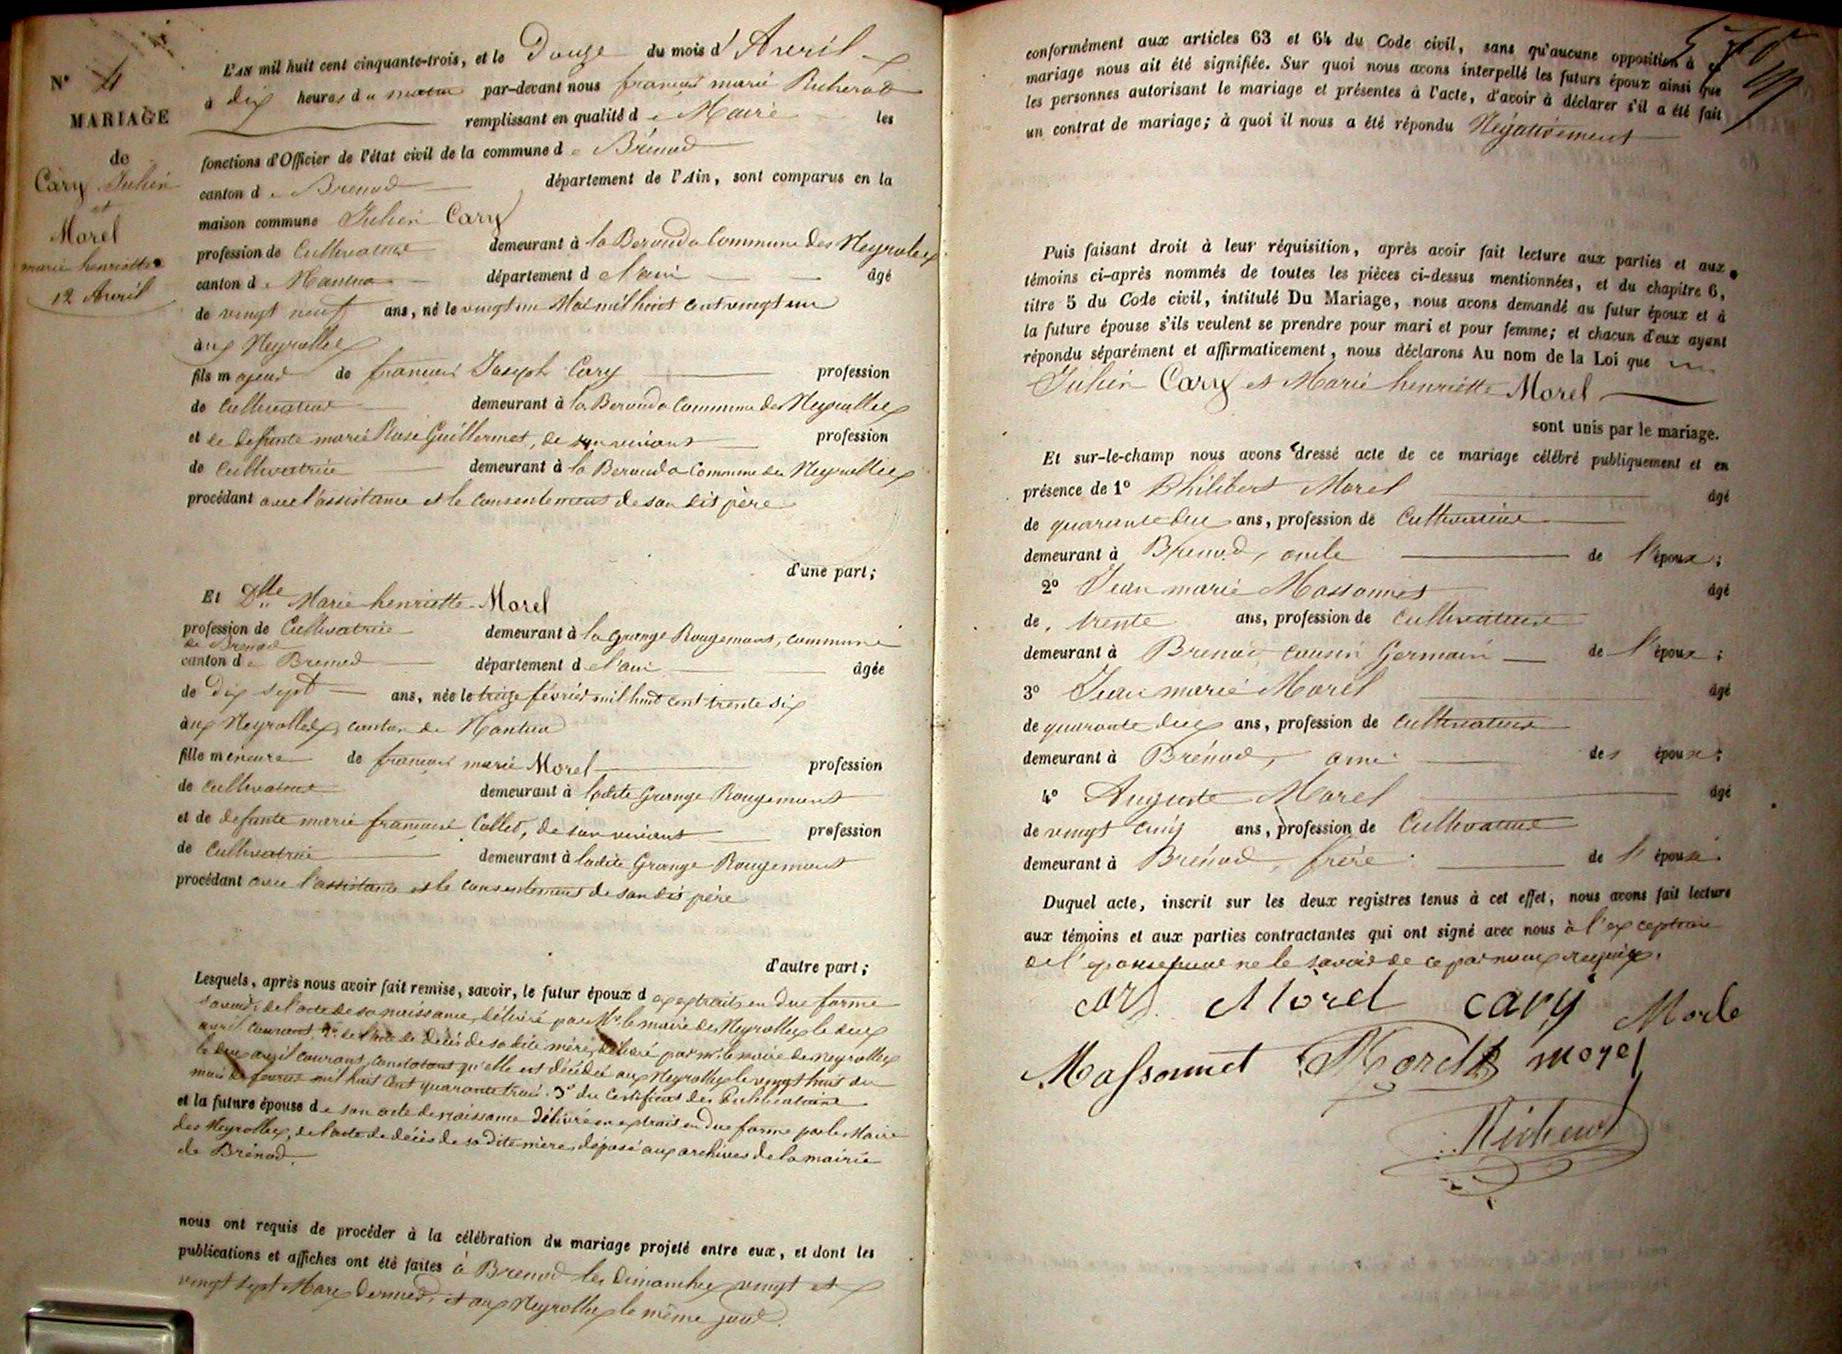 N° 4
MARIAGE
de
Cary Julien
et
Morel
marie henriette
12 Avril
L'AN mil huit cent cinquante-trois, et le Douze du mois d'Avril
à dix heures du matin par-devant nous françois marie Richerot
remplissant en qualité de Maire les
fonctions d'Officier de l'état civil de la commune de Brénod
canton de Brenod département de l'Ain, sont comparus en la
maison commune Julien Cary
profession de Cultivateur demeurant à la Berouda Commune des Neyrolles
canton de Nantua département de l'ain âgé
de vingt neuf ans, né le vingt un Mai mil huit cent vingt un
aux Neyrolles
fils majeur de françois Joseph Cary profession
de Cultivateur demeurant à la Berouda Commune des Neyrolles
et de defunte marie Rose Guillermet, de son vivant profession
de Cultivatrice demeurant à la Berouda Commune des Neyrolles
procédant avec l'assistance et le consentement de son dit père
d'une part;
Et Dlle Marie henriette Morel
profession de Cultivatrice demeurant à la Grange Rougemont, commune
de Brenod
canton de Brenod département de l'ain âgée
de dix sept ans, née le treize février mil huit cent trente six
aux Neyrolles, canton de Nantua
fille mineure de françois marie Morel profession
de cultivateur demeurant à ladite Grange Rougemont
et de defunte marie françoise Collet, de son vivant profession
de Cultivatrice demeurant à ladite Grange Rougemont
procédant avec l'assistance et le consentement de son dit père
d'autre part;
Lesquels, après nous avoir fait remise, savoir, le futur époux d extraits en due forme
savoir: de l'acte de sa naissance, délivré par Mr. le maire des Neyrolles le deux
avril courant, 2° de l'acte de décès de sa dite mère, délivré par mr le maire des Neyrolles
le deux avril courant, constatant qu'elle est décédée aux Neyrolles le vingt huit du
mois de février mil huit cent quarante trois. 3° du Certificat des Publications
et la future épouse de son acte de naissance délivré en extrait en due forme par le Maire
des Neyrolles, de l'acte de décès de sa dite mère, déposé aux archives de la mairie
de Brénod.
nous ont requis de procéder à la célébration du mariage projeté entre eux, et dont les
publications et affiches ont été faites à Brenod les dimanches vingt et
vingt sept Mars dernier, et aux Neyrolles le même jour.
conformément aux articles 63 et 64 du Code civil, sans qu'aucune opposition à ce
mariage nous ait été signifiée. Sur quoi nous avons interpellé les futurs époux ainsi que
les personnes autorisant le mariage et présentes à l'acte, d'avoir à déclarer s'il a été fait
un contrat de mariage; à quoi il nous a été répondu Négativement
Puis faisant droit à leur réquisition, après avoir fait lecture aux parties et aux
témoins ci-après nommés de toutes les pièces ci-dessus mentionnées, et du chapitre 6,
titre 5 du Code civil, intitulé Du Mariage, nous avons demandé au futur époux et à
la future épouse s'ils veulent se prendre pour mari et pour femme; et chacun d'eux ayant
répondu séparément et affirmativement, nous déclarons Au nom de la Loi que
Julien Cary et Marie henriette Morel
sont unis par le mariage.
Et sur-le-champ nous avons dressé acte de ce mariage célébré publiquement et en
présence de 1° Philibert Morel âgé
de quarante deux ans, profession de Cultivateur
demeurant à Brenod, oncle de l'époux;
2° Jean marie Massonnet âgé
de trente ans, profession de Cultivateur
demeurant à Brenod, cousin Germain de l'époux;
3° Jean marie Morel âgé
de quarante deux ans, profession de Cultivateur
demeurant à Brénod, ami des époux;
4° Auguste Morel âgé
de vingt cinq ans, profession de Cultivateur
demeurant à Brénod, frère de l'épouse
Duquel acte, inscrit sur les deux registres tenus à cet effet, nous avons fait lecture
aux témoins et aux parties contractantes qui ont signé avec nous à l'exception
de l'épouse pour ne le savoir de ce par nous requise.
cary Morel cary Morle
Massonnet Morel morel
Richerot